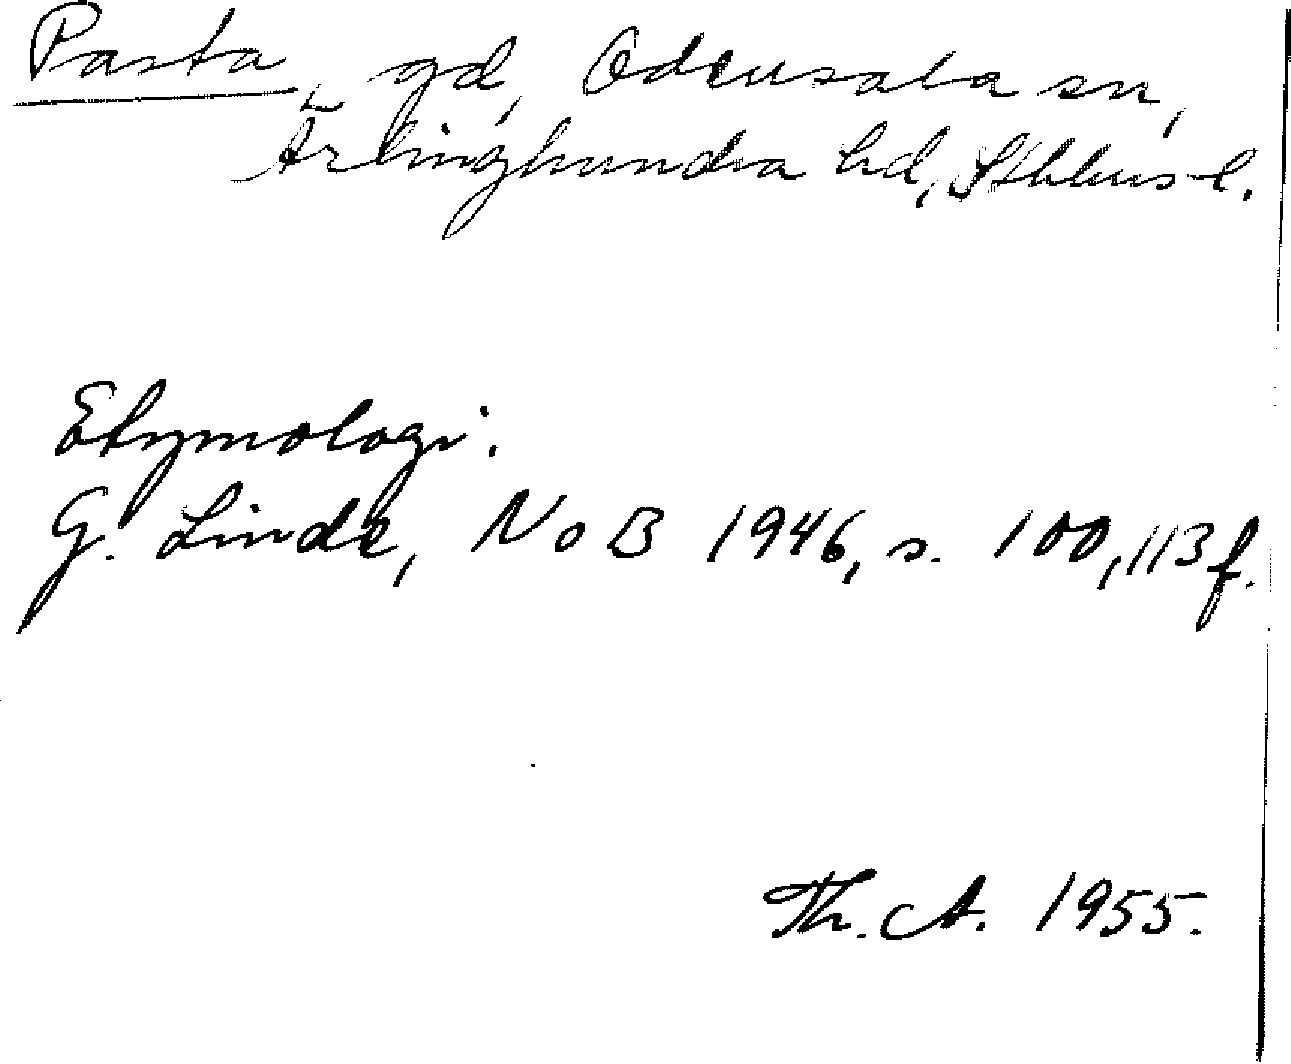 Pasta, gd, Odensala sn,
Ärlinghundra hd, Sthlms l.
Etymologi.
G. Linde, NoB 1946, s. 100, 113 f.
Th. A. 1955.